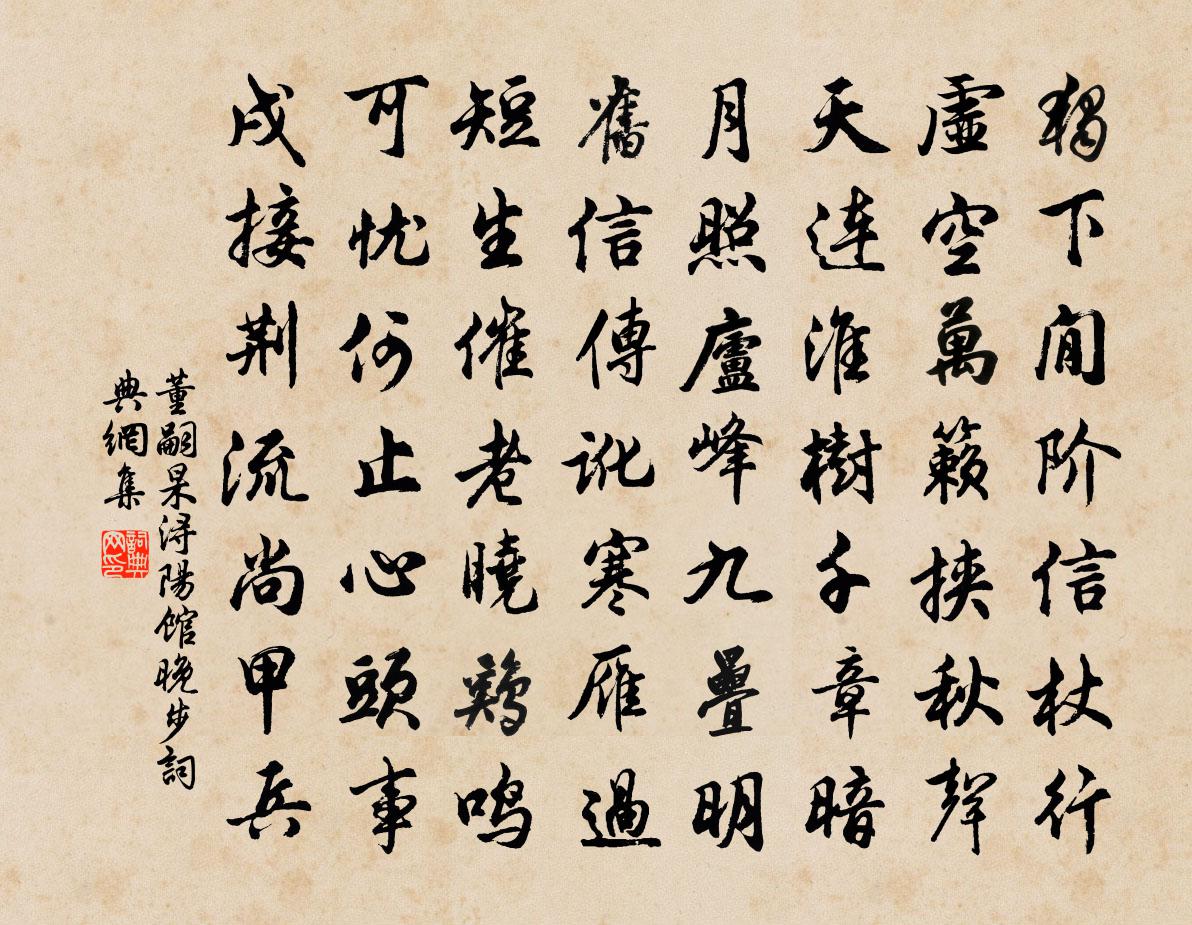 獨下閒阶信杖行
虛空萬籟挾秋聲
天連淮樹千章暗
月照廬峰九疊明
舊信傳訛寒雁過
短生催老曉鷄鸣
可忧何止心頭事
戍接荆流尚甲兵
董嗣杲浔陽馆晚步詞
典網集
詞典
网印